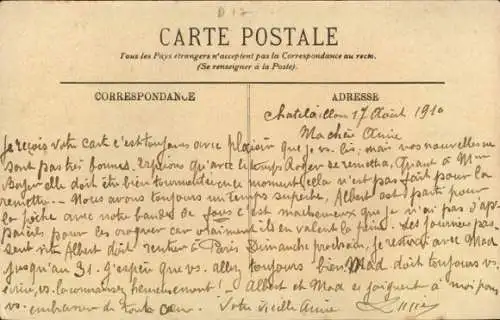 D 17
CARTE POSTALE
Tous les Pays étrangers n'acceptent pas la Correspondance au recto.
(Se renseigner à la Poste).
CORRESPONDANCE
ADRESSE
Chatelaillon 17 Août 1910
Ma chère Amie
Je reçois votre carte c'est toujours avec plaisir que je vs. lis, mais vos nouvelles ne
sont pas très bonnes. Espérons qu'avec le temps Roger se remettra, Quant à Mme
Boyer elle doit être bien tourmentée en ce moment cela n'est pas fait pour la
remettre — Nous avons toujours un temps superbe, Albert est parti pour
la pêche avec notre bande de fous c'est malheureux que je n'ai pas d'ap-
pareil pour les croquer car vraiment ils en valent la peine. Les journées pas-
sent vite Albert doit rentrer à Paris Dimanche prochain, je resterai avec Mad
jusqu'au 31. J'espère que vs. allez toujours bien. Mad doit toujours vs.
écrire, vs. la connaissez heureusement! — Albert et Mad se joignent à moi pour
vs. embrasser de tout cœur. Votre vieille amie